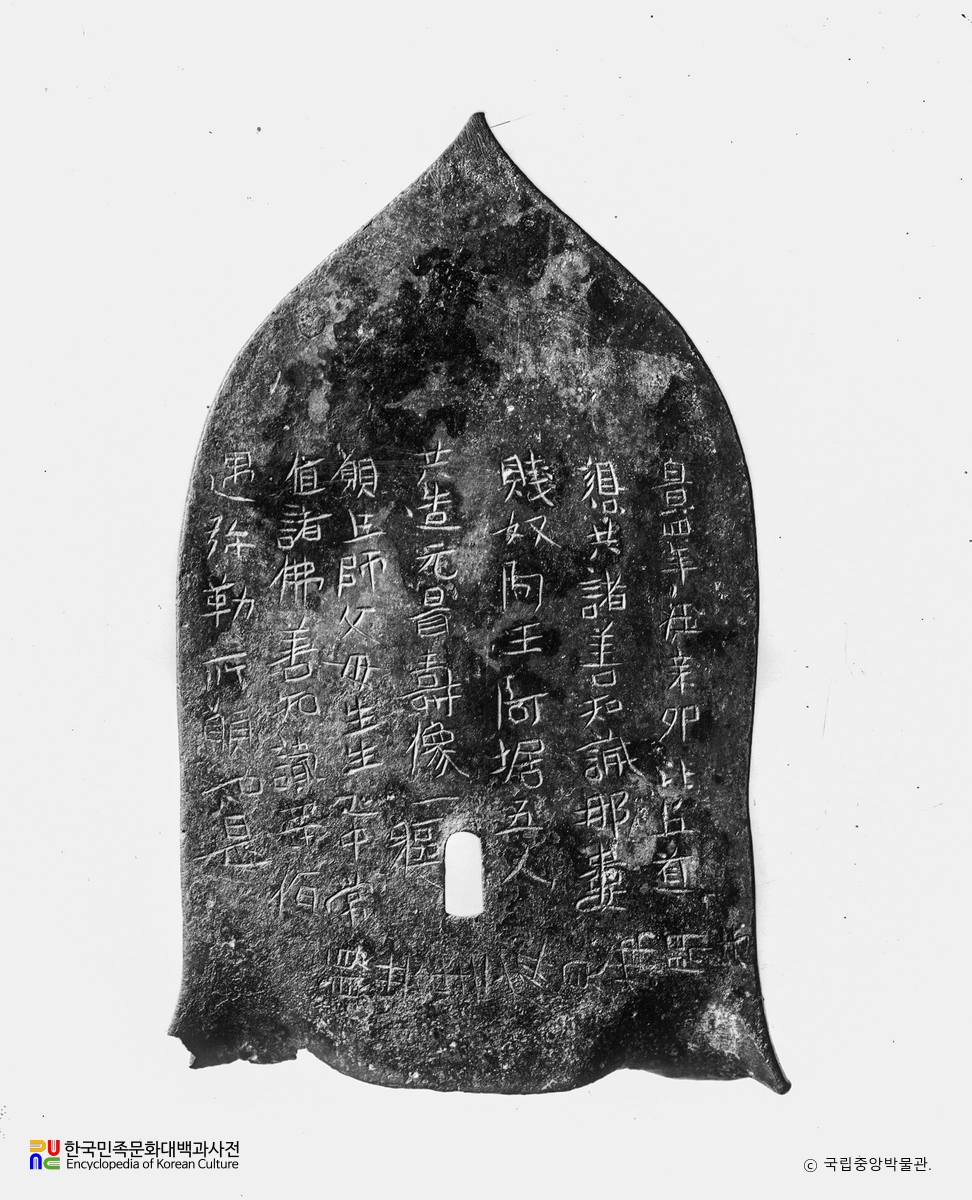 景四年在辛卯比丘道
須共諸善知識那婁
賤奴阿王阿据五人
共造无量壽像一軀
願亡師父母生生心中常
值諸佛善知識等值
遇弥勒所願如是
한국민족문화대백과사전
Encyclopedia of Korean Culture
© 국립중앙박물관.